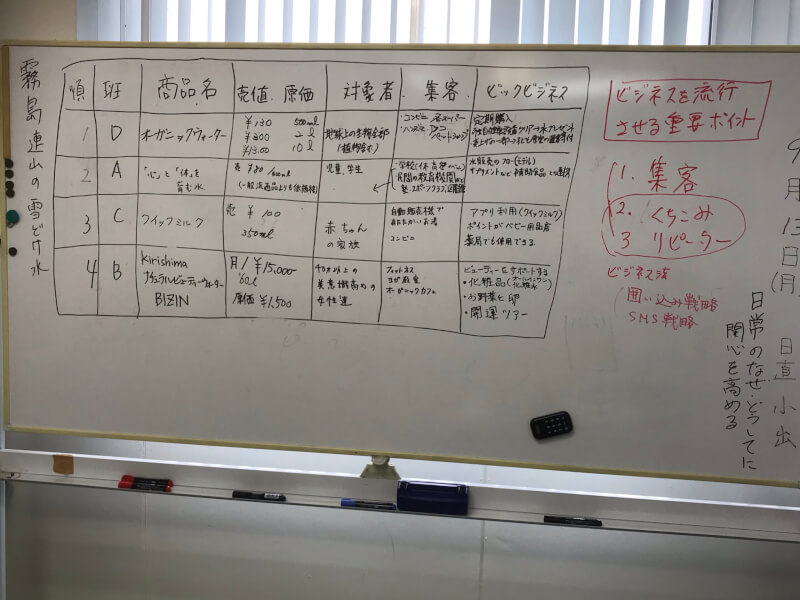 霧島連山の雪どけ水
順 班 商品名 売値 原価 対象者 集客 ビックビジネス
1 D オーガニックウォーター
¥130 500ml
¥200 2l
¥1300 10l
地球上の生物全部
(植物含む)
コンビニ
定期購入
2 A 「心」と「体」を
育む水
売 ¥80/500ml
(一般流通品よりも低価格)
児童、学生
民間の教育機関
塾、スポーツクラブ、図書館
3 C クイックミルク
売 ¥100
350ml
赤ちゃん
の家族
自動販売機で
あたたかいお湯
コンビニ
アプリ利用(クイックミルク)
ポイントがベビー用品店
薬局でも使用できる。
4 B kirishima
ナチュラルビューティーウォーター
BIZIN
月/¥15,000-
60l
原価 ¥1,500
40才以上の
美意識高めの
女性達
フィットネス
ヨガ教室
オーガニックカフェ
ビューティーをサポートする
・化粧品(オールインワン
化粧水)
・お野菜と卵
・開運ツアー
ビジネスを流行
させる重要ポイント
1. 集客
2. くちこみ
3 リピーター
ビジネス法
囲い込み戦略
SNS戦略
9月13日(月) 日直 小出
日常のなぜ・どうしてに
関心を高める